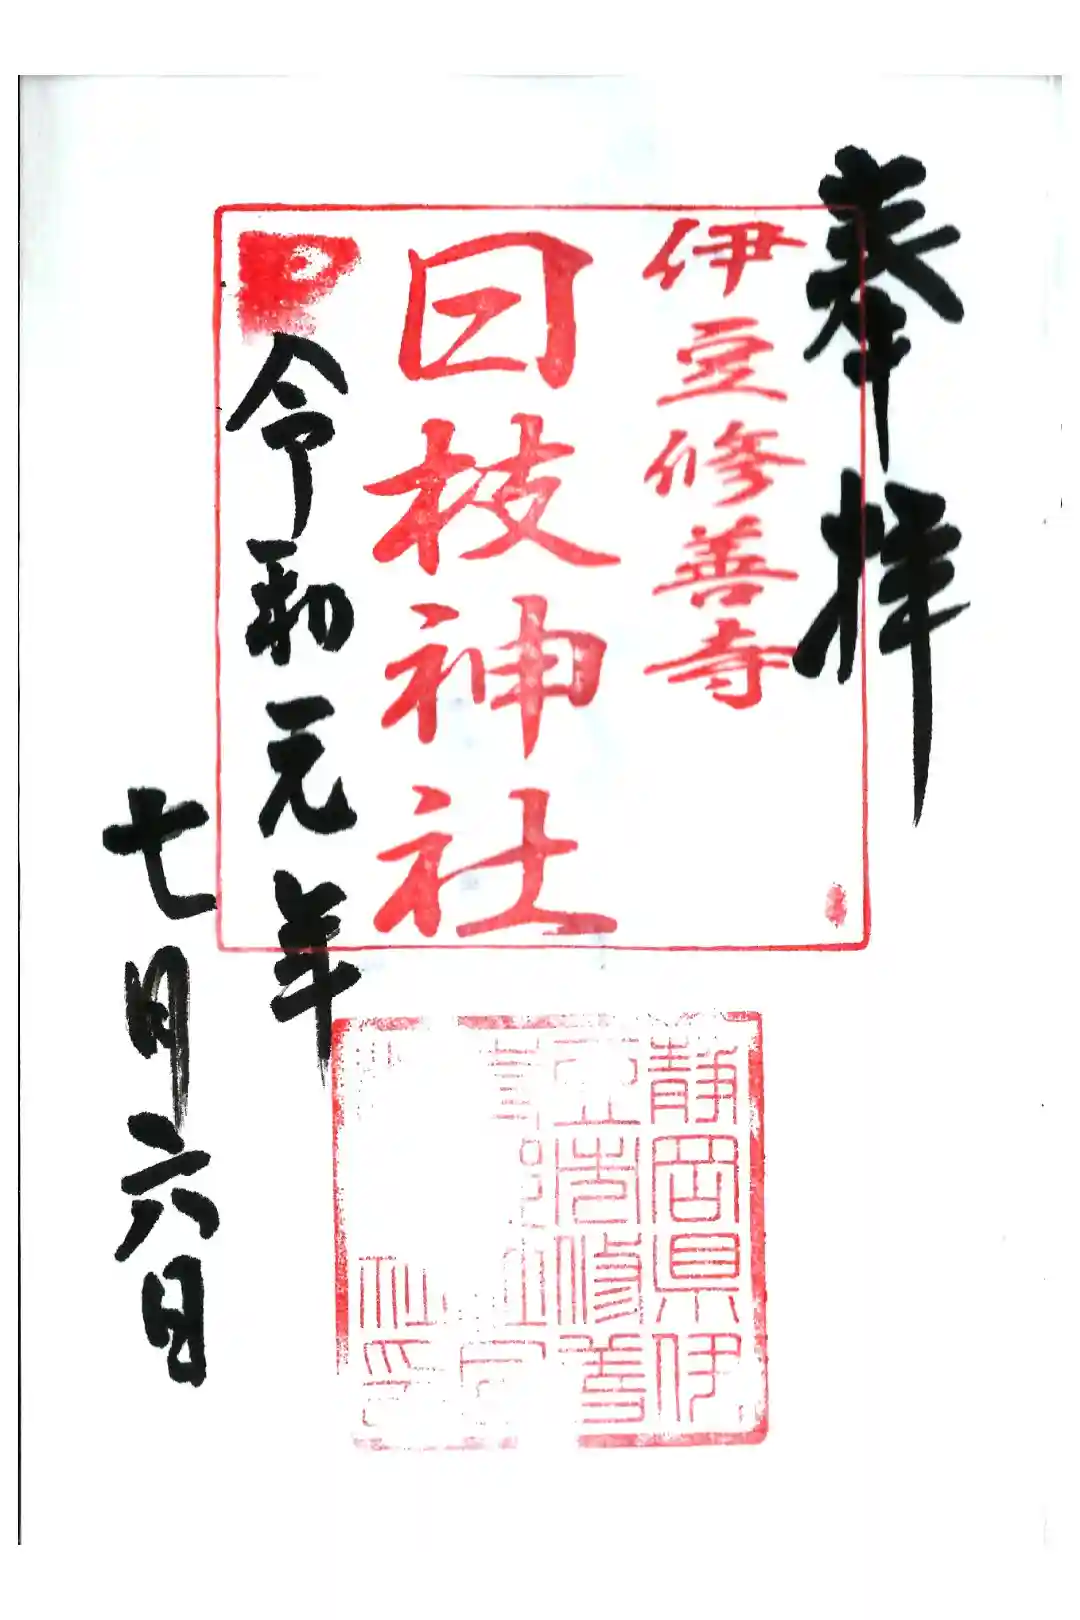 奉拝
伊豆修善寺
日枝神社
令和元年
七月六日
静岡県伊
豆市修善